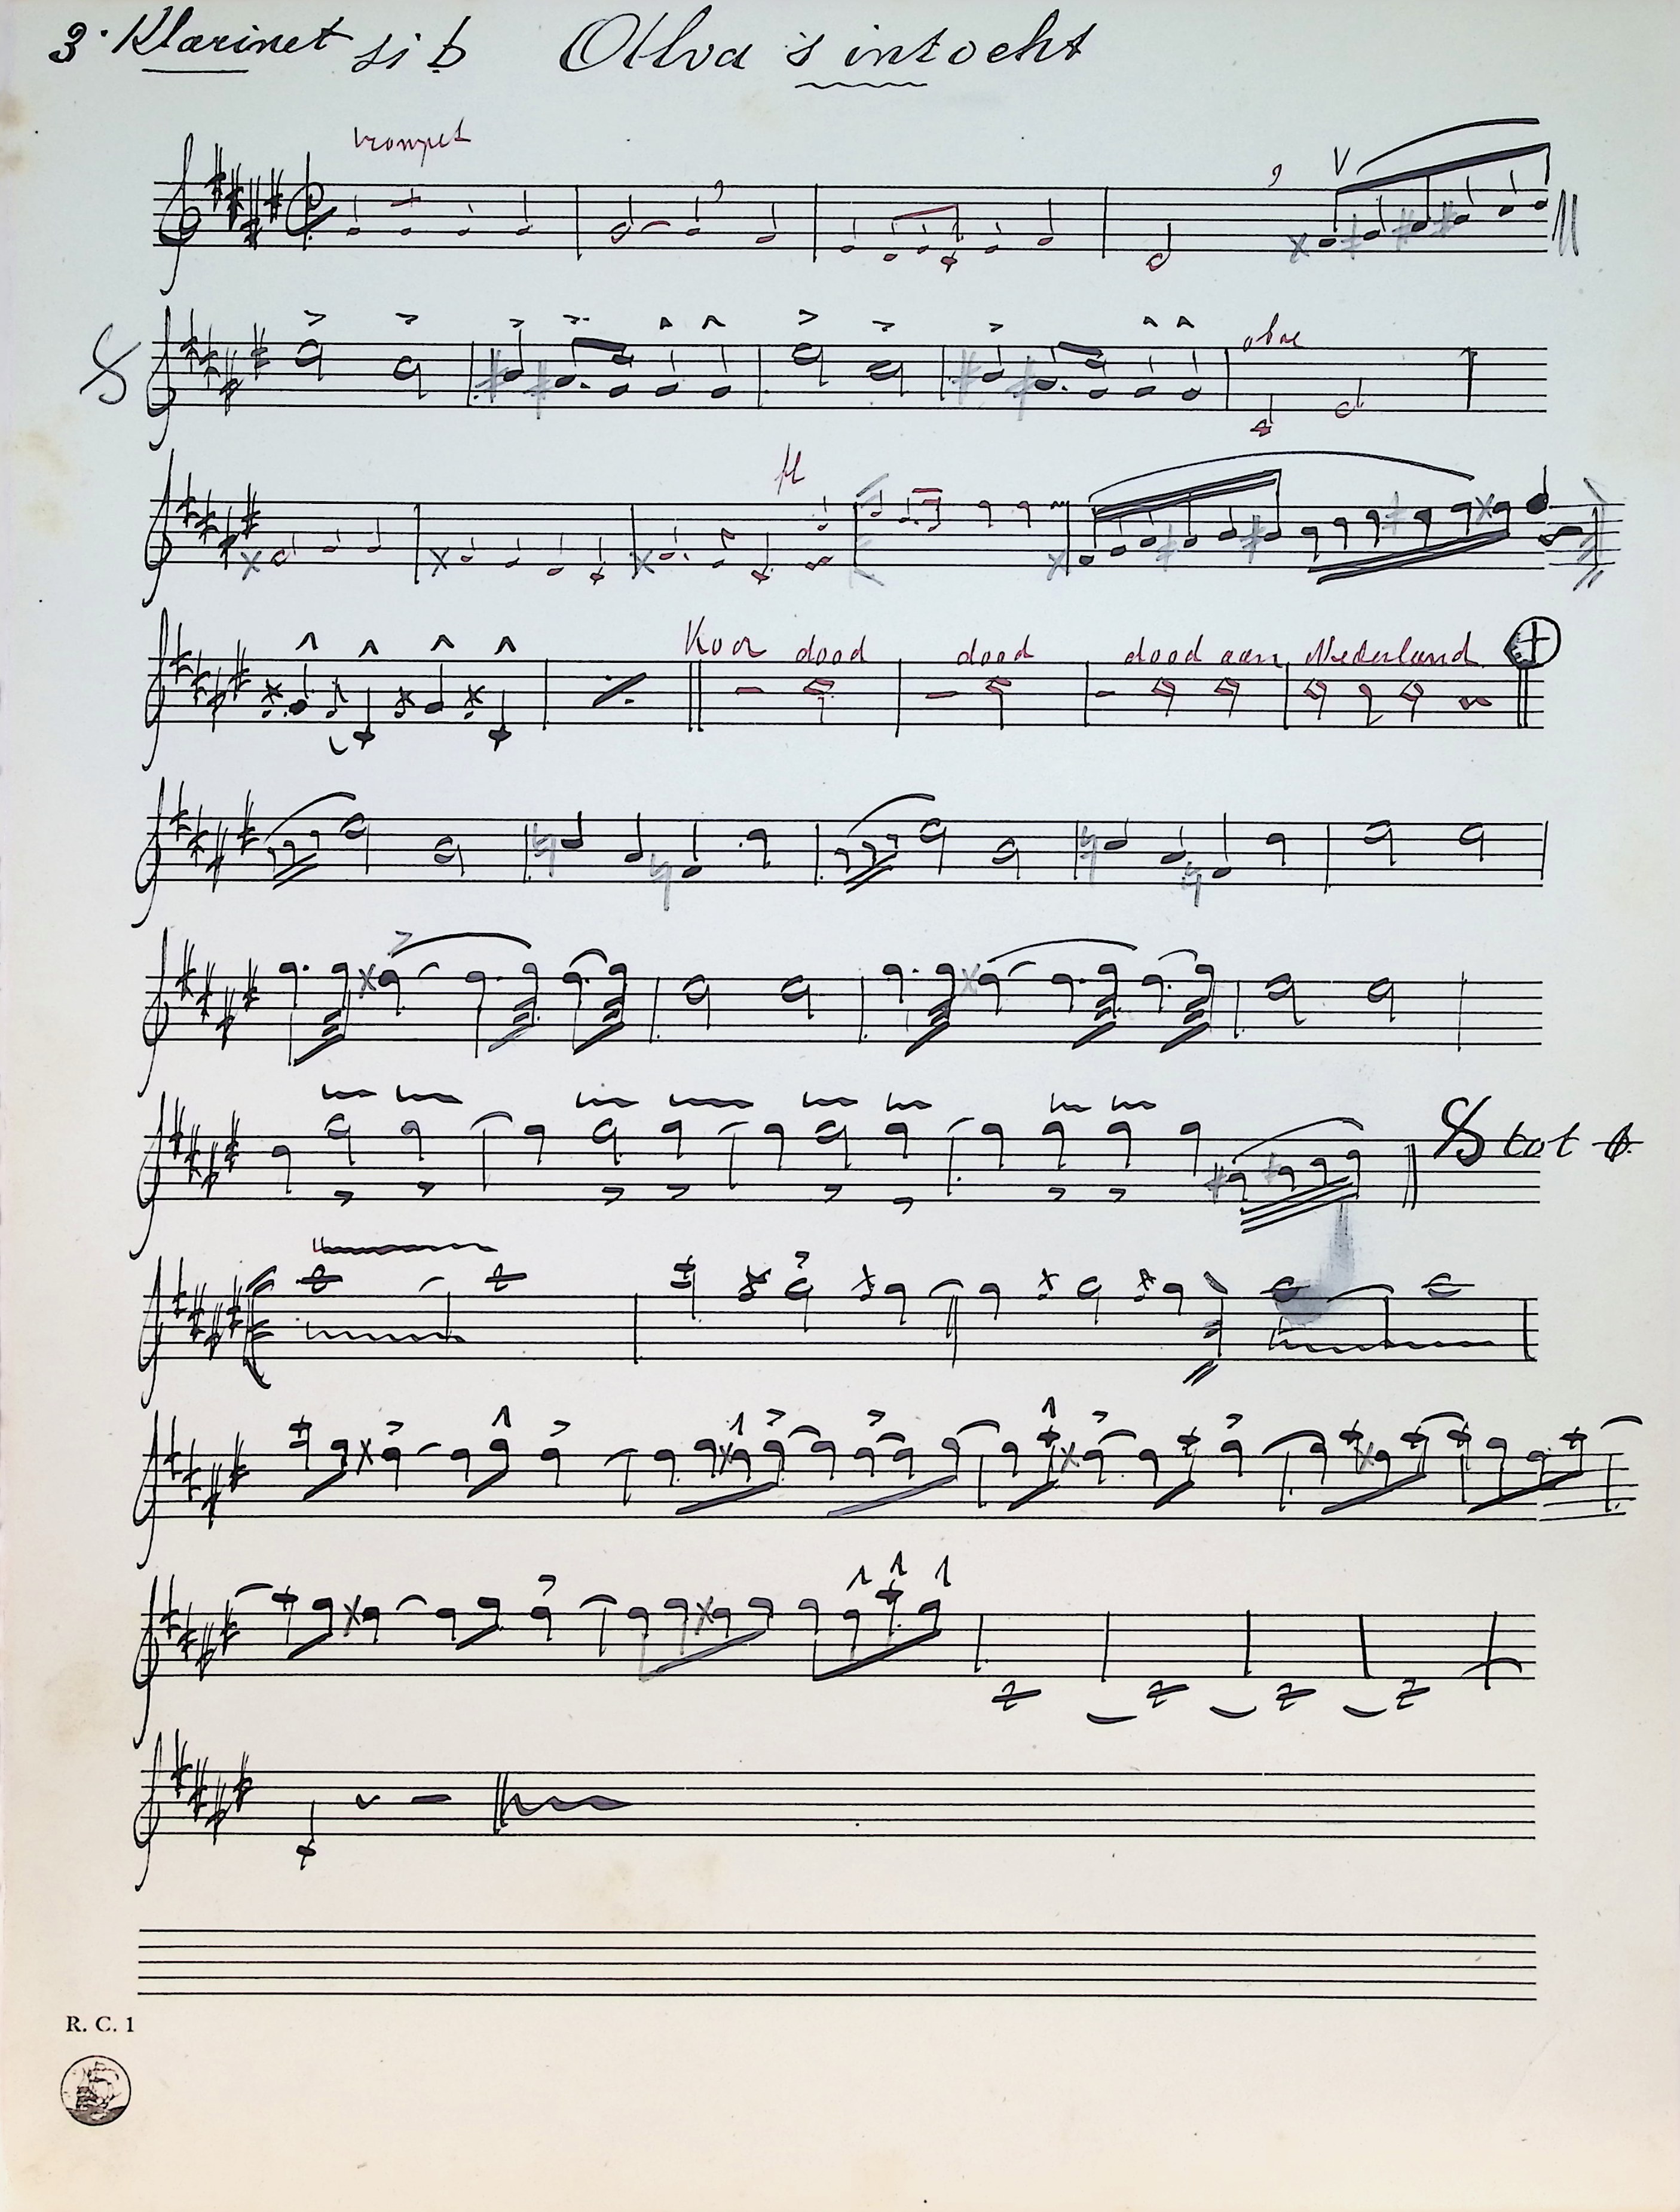 3. Klarinet si b Alva's intocht
trompet
oboe
fl
Koor dood dood dood aan Nederland
tot
R. C. 1